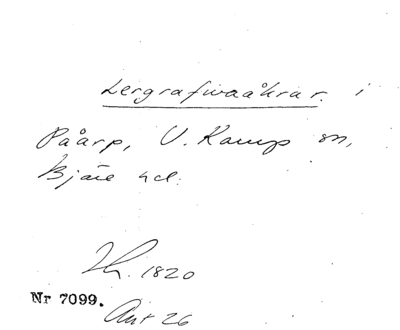 Lergrafwaåkrar i
Påarp, V. Karup sn,
Bjäre hd.
Th. 1820
Nr 7099.
Avt 26